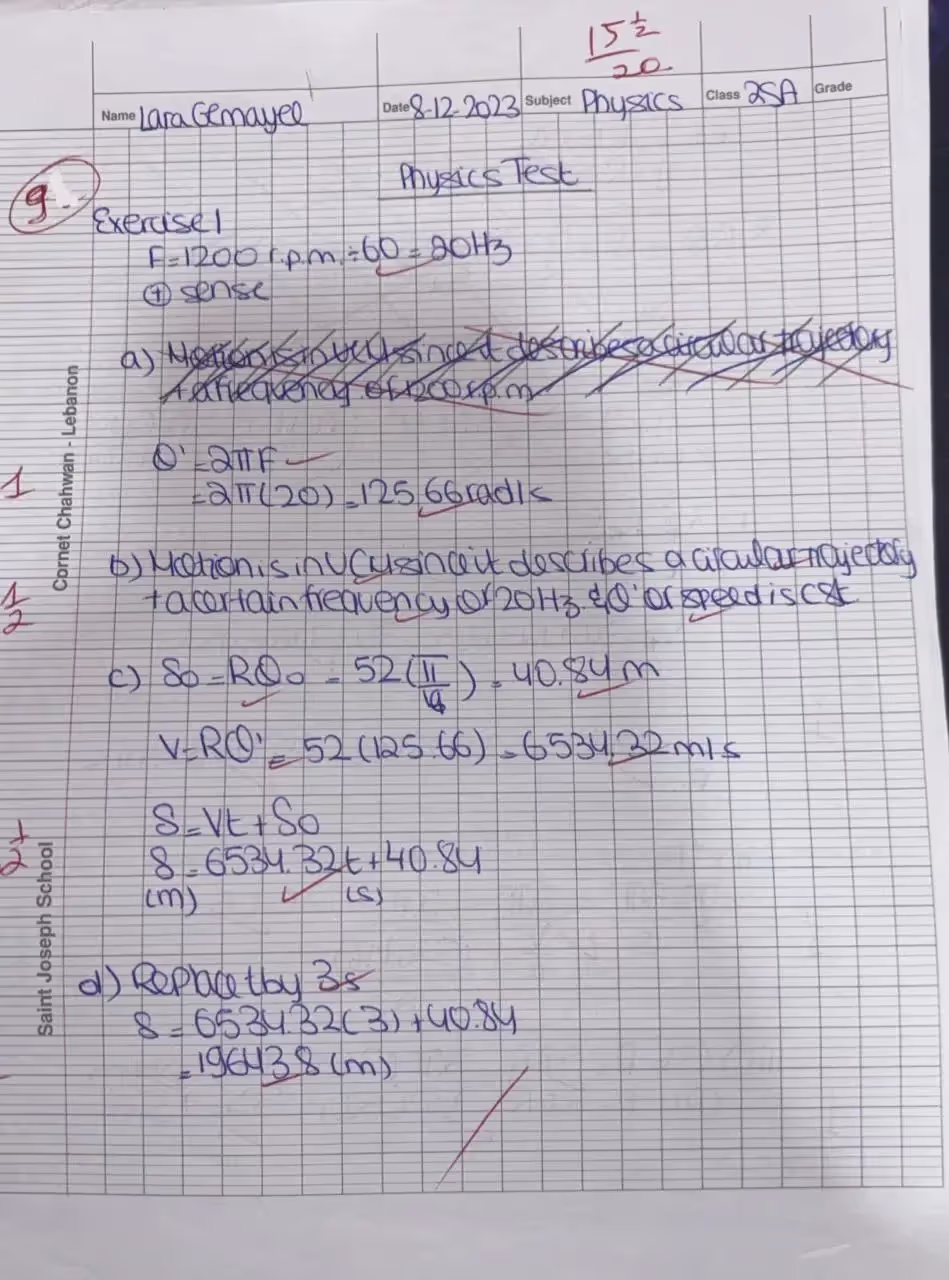 15 1/2
20
Name Lara Gemayel Date 8-12-2023 Subject Physics Class 2SA Grade
Physics Test
9
Exercise 1
F=1200 r.p.m.÷60=20Hz
⊕ sense
a) Motion is in UCM since it describes a circular trajectory
+ a frequency of 1200 r.p.m
θ'=2πF
1
=2π(20)=125.66rad/s
b) Motion is in UCM since it describes a circular trajectory
1/2
+ a certain frequency of 20Hz & θ' or speed is cst.
c) S0=Rθ0=52(π/4)=40.84m
V=Rθ'=52(125.66)=6534.32m/s
S=Vt+S0
S=6534.32t+40.84
(m) (s)
d) Replace t by 3s
S=6534.32(3)+40.84
=19643.8(m)
Cornet Chahwan - Lebanon
Saint Joseph School